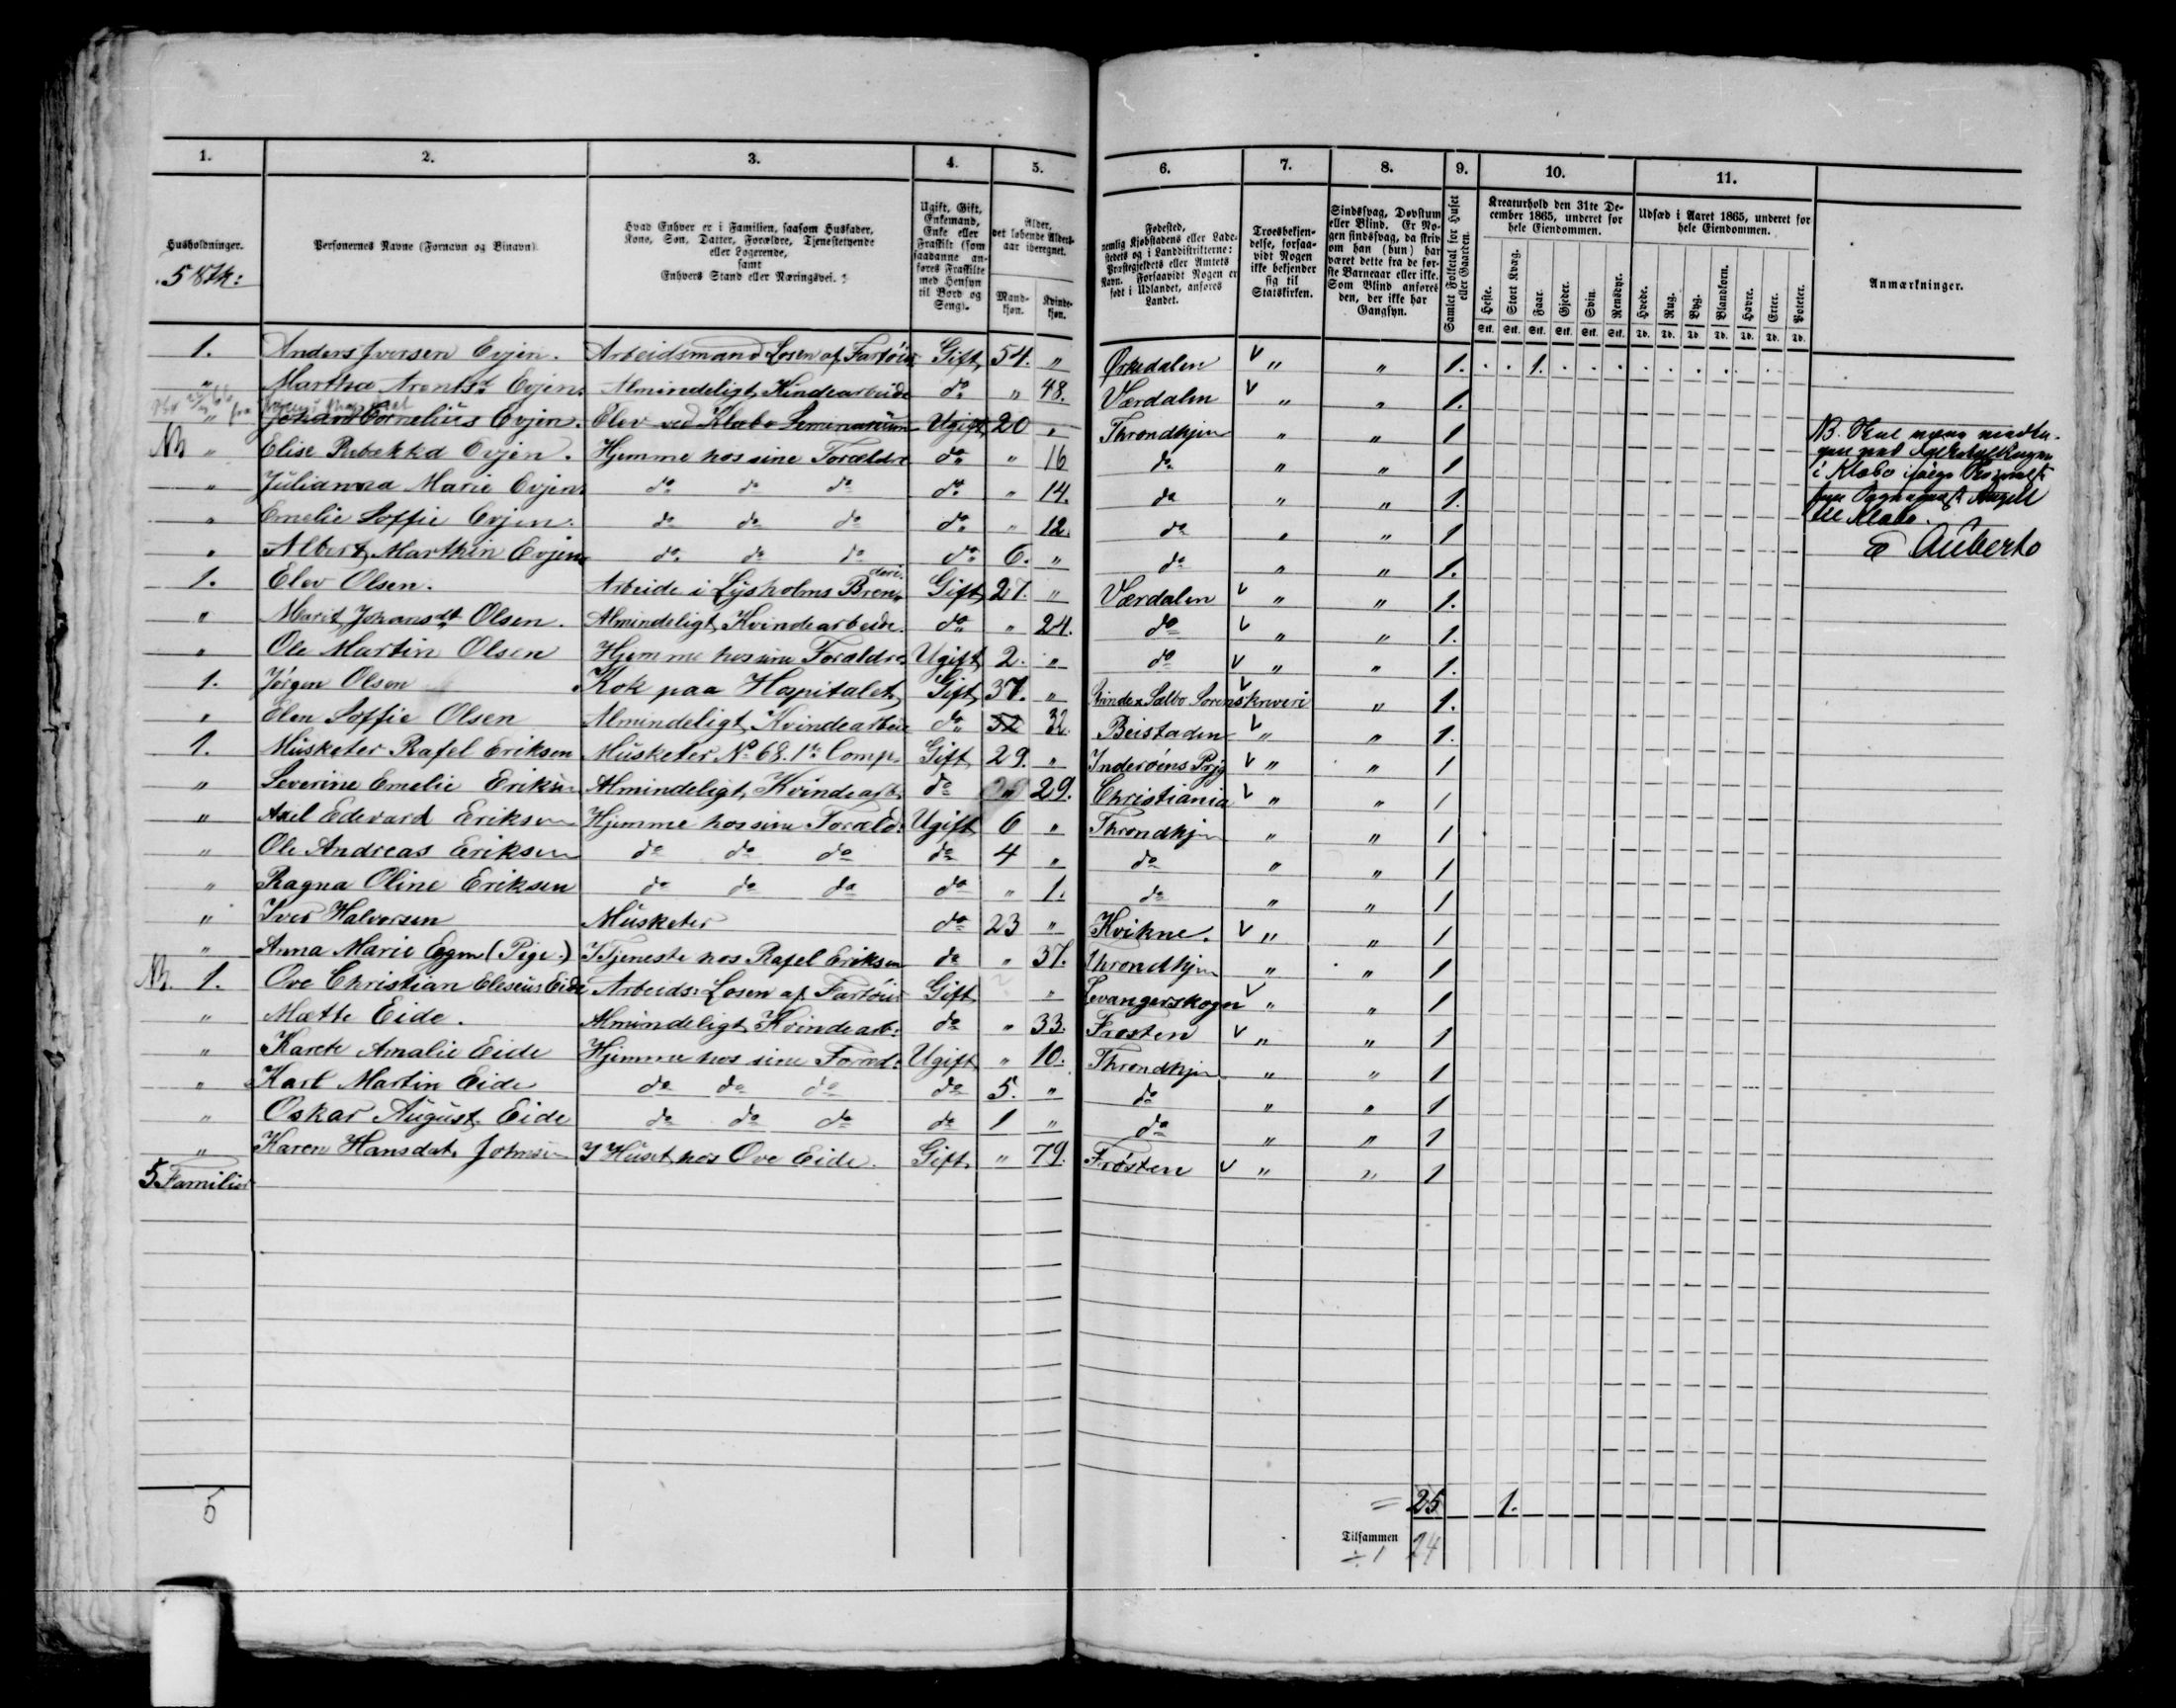 1. 2. 3. 4. 5. 6. 7. 8. 9. 10. 11.
Husholdninger.
5
Personernes Navne (Fornavn og Binavn).
Hvad Enhver er i Familien, saasom Husfader,
Kone, Søn, Datter, Forældre, Tjenestetyende
eller Logerende,
samt
Enhvers Stand eller Næringsvei.
Ugift, Gift,
Enkemand,
Enke eller
Fraskilt (som
saadanne an-
føres Fraskilte
med Hensyn
til Bord og
Seng).
Alder,
det løbende Alders-
aar iberegnet.
Mand-
kjøn.
Kvinde-
kjøn.
Fødested,
nemlig Kjøbstadens eller Lade-
stedets og i Landdistrikterne:
Præstegjeldets eller Amtets
Navn. Forsaavidt Nogen er
født i Udlandet, anføres
Landet.
Troesbekjen-
delse, forsaa-
vidt Nogen
ikke bekjender
sig til
Statskirken.
Sindssvag, Døvstum
eller Blind. Er No-
gen sindssvag, da skriv
om han (hun) har
været dette fra de før-
ste Barneaar eller ikke.
Som Blind anføres
den, der ikke har
Gangsyn.
Samlet Folketal for Huset
eller Gaarden.
Kreaturhold den 31te De-
cember 1865, underet for
hele Eiendommen.
Heste. Stort Kvæg. Faar. Gjeder. Svin. Rensdyr.
Stk. Stk. Stk. Stk. Stk. Stk.
Udsæd i Aaret 1865, underet for
hele Eiendommen.
Hvede. Rug. Byg. Blandkorn. Havre. Erter. Poteter.
Td. Td. Td. Td. Td. Td. Td.
Anmærkninger.
1. Anders Iversen Evjen. Arbeidsmand Losen af Fartøier Gift 54. " Ørkedalen V " " 1. . . 1. . . . . . . . . . .
" Martha Arentsdt Evjen. Almindeligt Kindearbeide do " 48. Værdalen V " " 1.
" Johan Cornelius Evjen. Elev ved Klæbo Seminarium Ugigt 20 " Throndhjem " " 1
NB " Elise Rebekka Evjen. Hjemme hos sine Forældre do " 16 do " " 1
" Julianna Marie Evjen. do do do do " 14. do " " 1.
" Emelie Soffie Evjen. do do do do " 12. do " " 1
" Albert Marthin Evjen do do do do 6. " do " " 1.
1. Elev Olsen. Arbeide i Lysholms Brenderi. Gift 27. " Værdalen V " " 1.
" Marit Johansdt Olsen. Almindeligt Kvindearbeide. do " 24. do V " " 1.
" Ole Martin Olsen Hjemme hos sine Forældre Ugift 2. " do V " " 1.
1. Jørgen Olsen Kok paa Hospitalet Gift 37. " Strinde & Sælbo Sorenskriveri V " 1.
" Elen Soffie Olsen Almindeligt Kvindearbeide do 32 32. Beistaden V " " 1.
1. Musketer Rafel Eriksen Musketer No 68. 1te Comp. Gift 29. " Inderøens Prjg V " " 1
" Severine Emelie Eriksen Almindeligt Kvindearb. do 29. Christiania V " " 1
" Axel Edevard Eriksen Hjemme hos sine Foræld. Ugift 6 " Throndhjem " " 1
" Ole Andreas Eriksen do do do do 4 " do " " 1
" Ragna Oline Eriksen do do do do " 1. do " " 1
" Iver Halvorsen Musketer do 23 " Kvikne. V " " 1
" Anna Marie (Pige.) I Tjeneste hos Rafel Eriksen do " 37. Throndhjem " " 1
NB. 1. Ove Christian Eliseus Eide Arbeids: Losen af Fartøier Gift " Levangerskogn V " " 1
" Mætte Eide. Almindeligt Kvindearb: do " 33. Frosten V " " 1
" Karete Amalie Eide Hjemme hos sine Foræd: Ugift " 10. Throndhjem " " 1
" Karl Martin Eide do do do do 5. " do " " 1
" Oskar August Eide do do do do 1 " do " " 1
" Karen Hansdat. Johnsen I Huset hos Ove Eide. Gift. " 79. Frosten V " " 1
5 Familier
NB.
i Klæbo
til Klæbo.
E Auberto
5 = 25 1.
Tilsammen
÷ 1 24